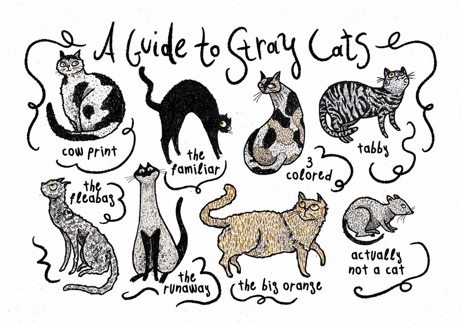 A Guide to Stray Cats
cow print
the
familiar
3
colored
tabby
the
fleabag
the
runaway
the big orange
actually
not a cat